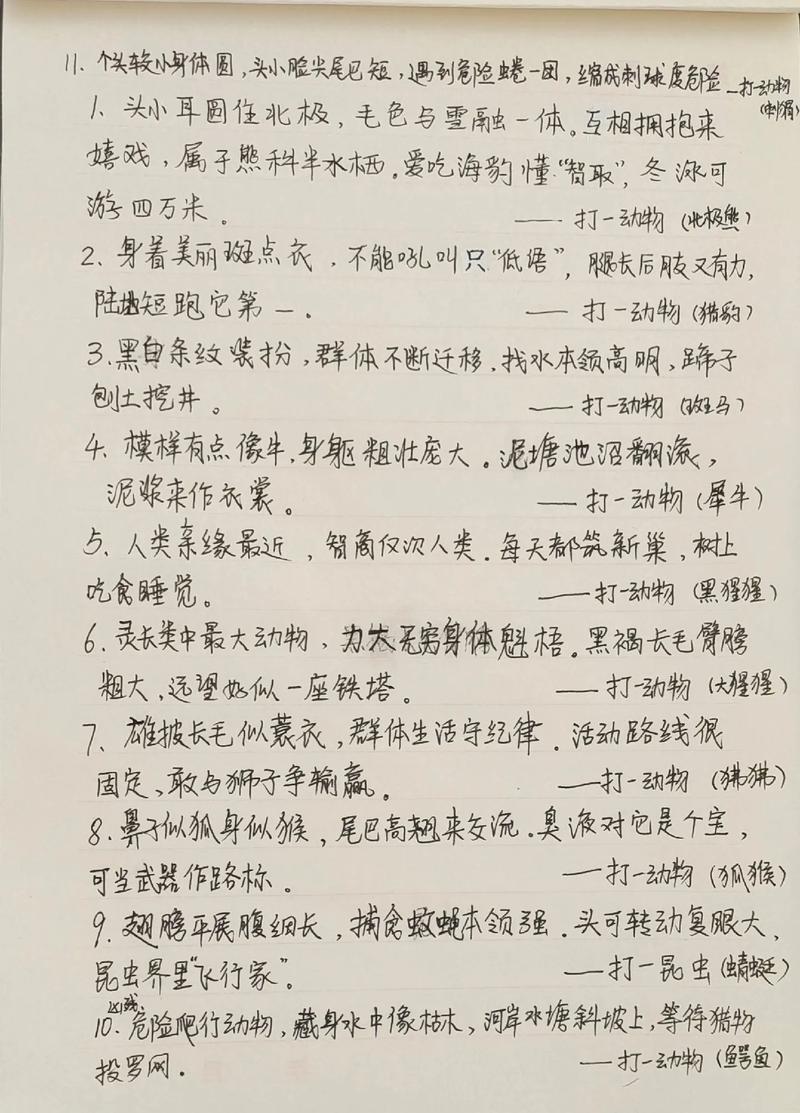 11、个头较小身体圆,头小脸尖尾巴短,遇到危险蜷一团,缩成刺球度危险 —打一动物
(刺猬)
1、头小耳圆住北极,毛色与雪融一体。互相拥抱来
嬉戏,属于熊科半水栖。爱吃海豹懂“智取”,冬泳可
游四万米。 ——打一动物(北极熊)
2、身着美丽斑点衣,不能吼叫只“低语”,腿长后肢又有力,
陆地短跑它第一。 ——打一动物(猎豹)
3、黑白条纹装扮,群体不断迁移,找水本领高明,蹄子
刨土挖井。 ——打一动物(斑马)
4、模样有点像牛,身躯粗壮庞大。泥塘池沼翻滚,
泥浆来作衣裳。 ——打一动物(犀牛)
5、人类亲缘最近,智商仅次人类。每天都筑新巢,树上
吃食睡觉。 ——打一动物(黑猩猩)
6、灵长类中最大动物,力大无穷身体魁梧。黑褐长毛臂膀
粗大,远望好似一座铁塔。 ——打一动物(大猩猩)
7、雄披长毛似蓑衣,群体生活守纪律。活动路线很
固定、敢与狮子争输赢。 ——打一动物(狒狒)
8、鼻子似狐身似猴,尾巴高翘来交流。臭液对它是个宝,
可当武器作路标。 ——打一动物(狐猴)
9、翅膀平展腹细长,捕食蚊蝇本领强。头可转动复眼大、
昆虫界里“飞行家”。 ——打一昆虫(蜻蜓)
10、危险爬行动物,藏身水中像枯木,河岸水塘斜坡上,等待猎物
投罗网。 ——打一动物(鳄鱼)